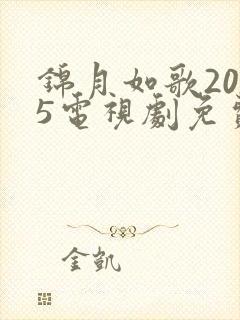 錦月如歌20
5電視劇免
金凱